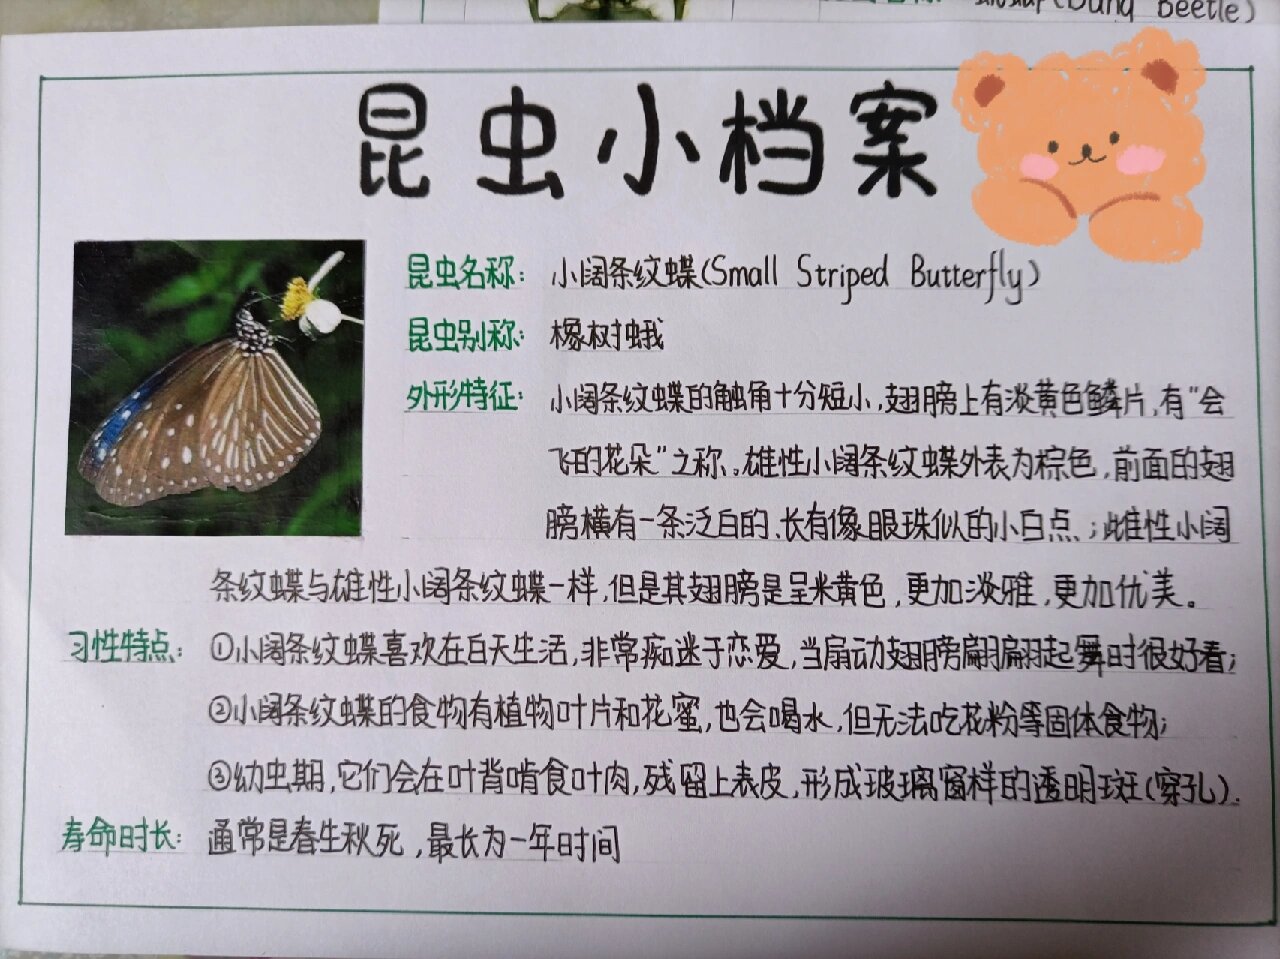 Beetle)
昆虫小档案
昆虫名称：小阔条纹蝶(Small Striped Butterfly)
昆虫别称：橡树蛾
外形特征：小阔条纹蝶的触角十分短小，翅膀上有淡黄色鳞片，有“会
飞的花朵”之称。雄性小阔条纹蝶外表为棕色，前面的翅
膀横有一条泛白的、长有像眼珠似的小白点；雌性小阔
条纹蝶与雄性小阔条纹蝶一样，但是其翅膀是呈米黄色，更加淡雅，更加优美。
习性特点：①小阔条纹蝶喜欢在白天生活，非常痴迷于恋爱，当扇动翅膀翩翩起舞时很好看；
②小阔条纹蝶的食物有植物叶片和花蜜，也会喝水，但无法吃花粉等固体食物；
③幼虫期，它们会在叶背啃食叶肉，残留上表皮，形成玻璃窗样的透明斑(穿孔)．
寿命时长：通常是春生秋死，最长为一年时间